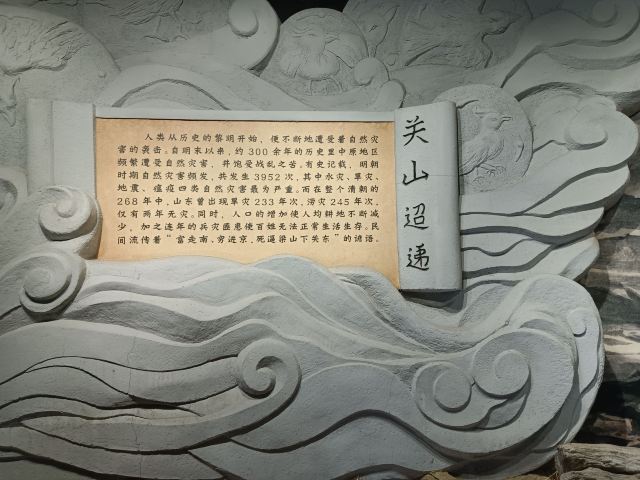 人类从历史的黎明开始，便不断地遭受着自然灾
害的袭击。自明末以来，约300余年的历史里中原地区
频繁遭受自然灾害，并饱受战乱之苦。有史记载，明朝
时期自然灾害频发，共发生3952次，其中水灾、旱灾、
地震、瘟疫四类自然灾害最为严重。而在整个清朝的
268年中，山东曾出现旱灾233年次，涝灾245年次，
仅有两年无灾。同时，人口的增加使人均耕地不断减
少，加之连年的兵灾匪患使百姓无法正常生活生存。民
间流传着“富走南，穷进京，死逼梁山下关东”的谚语。
关山迢递